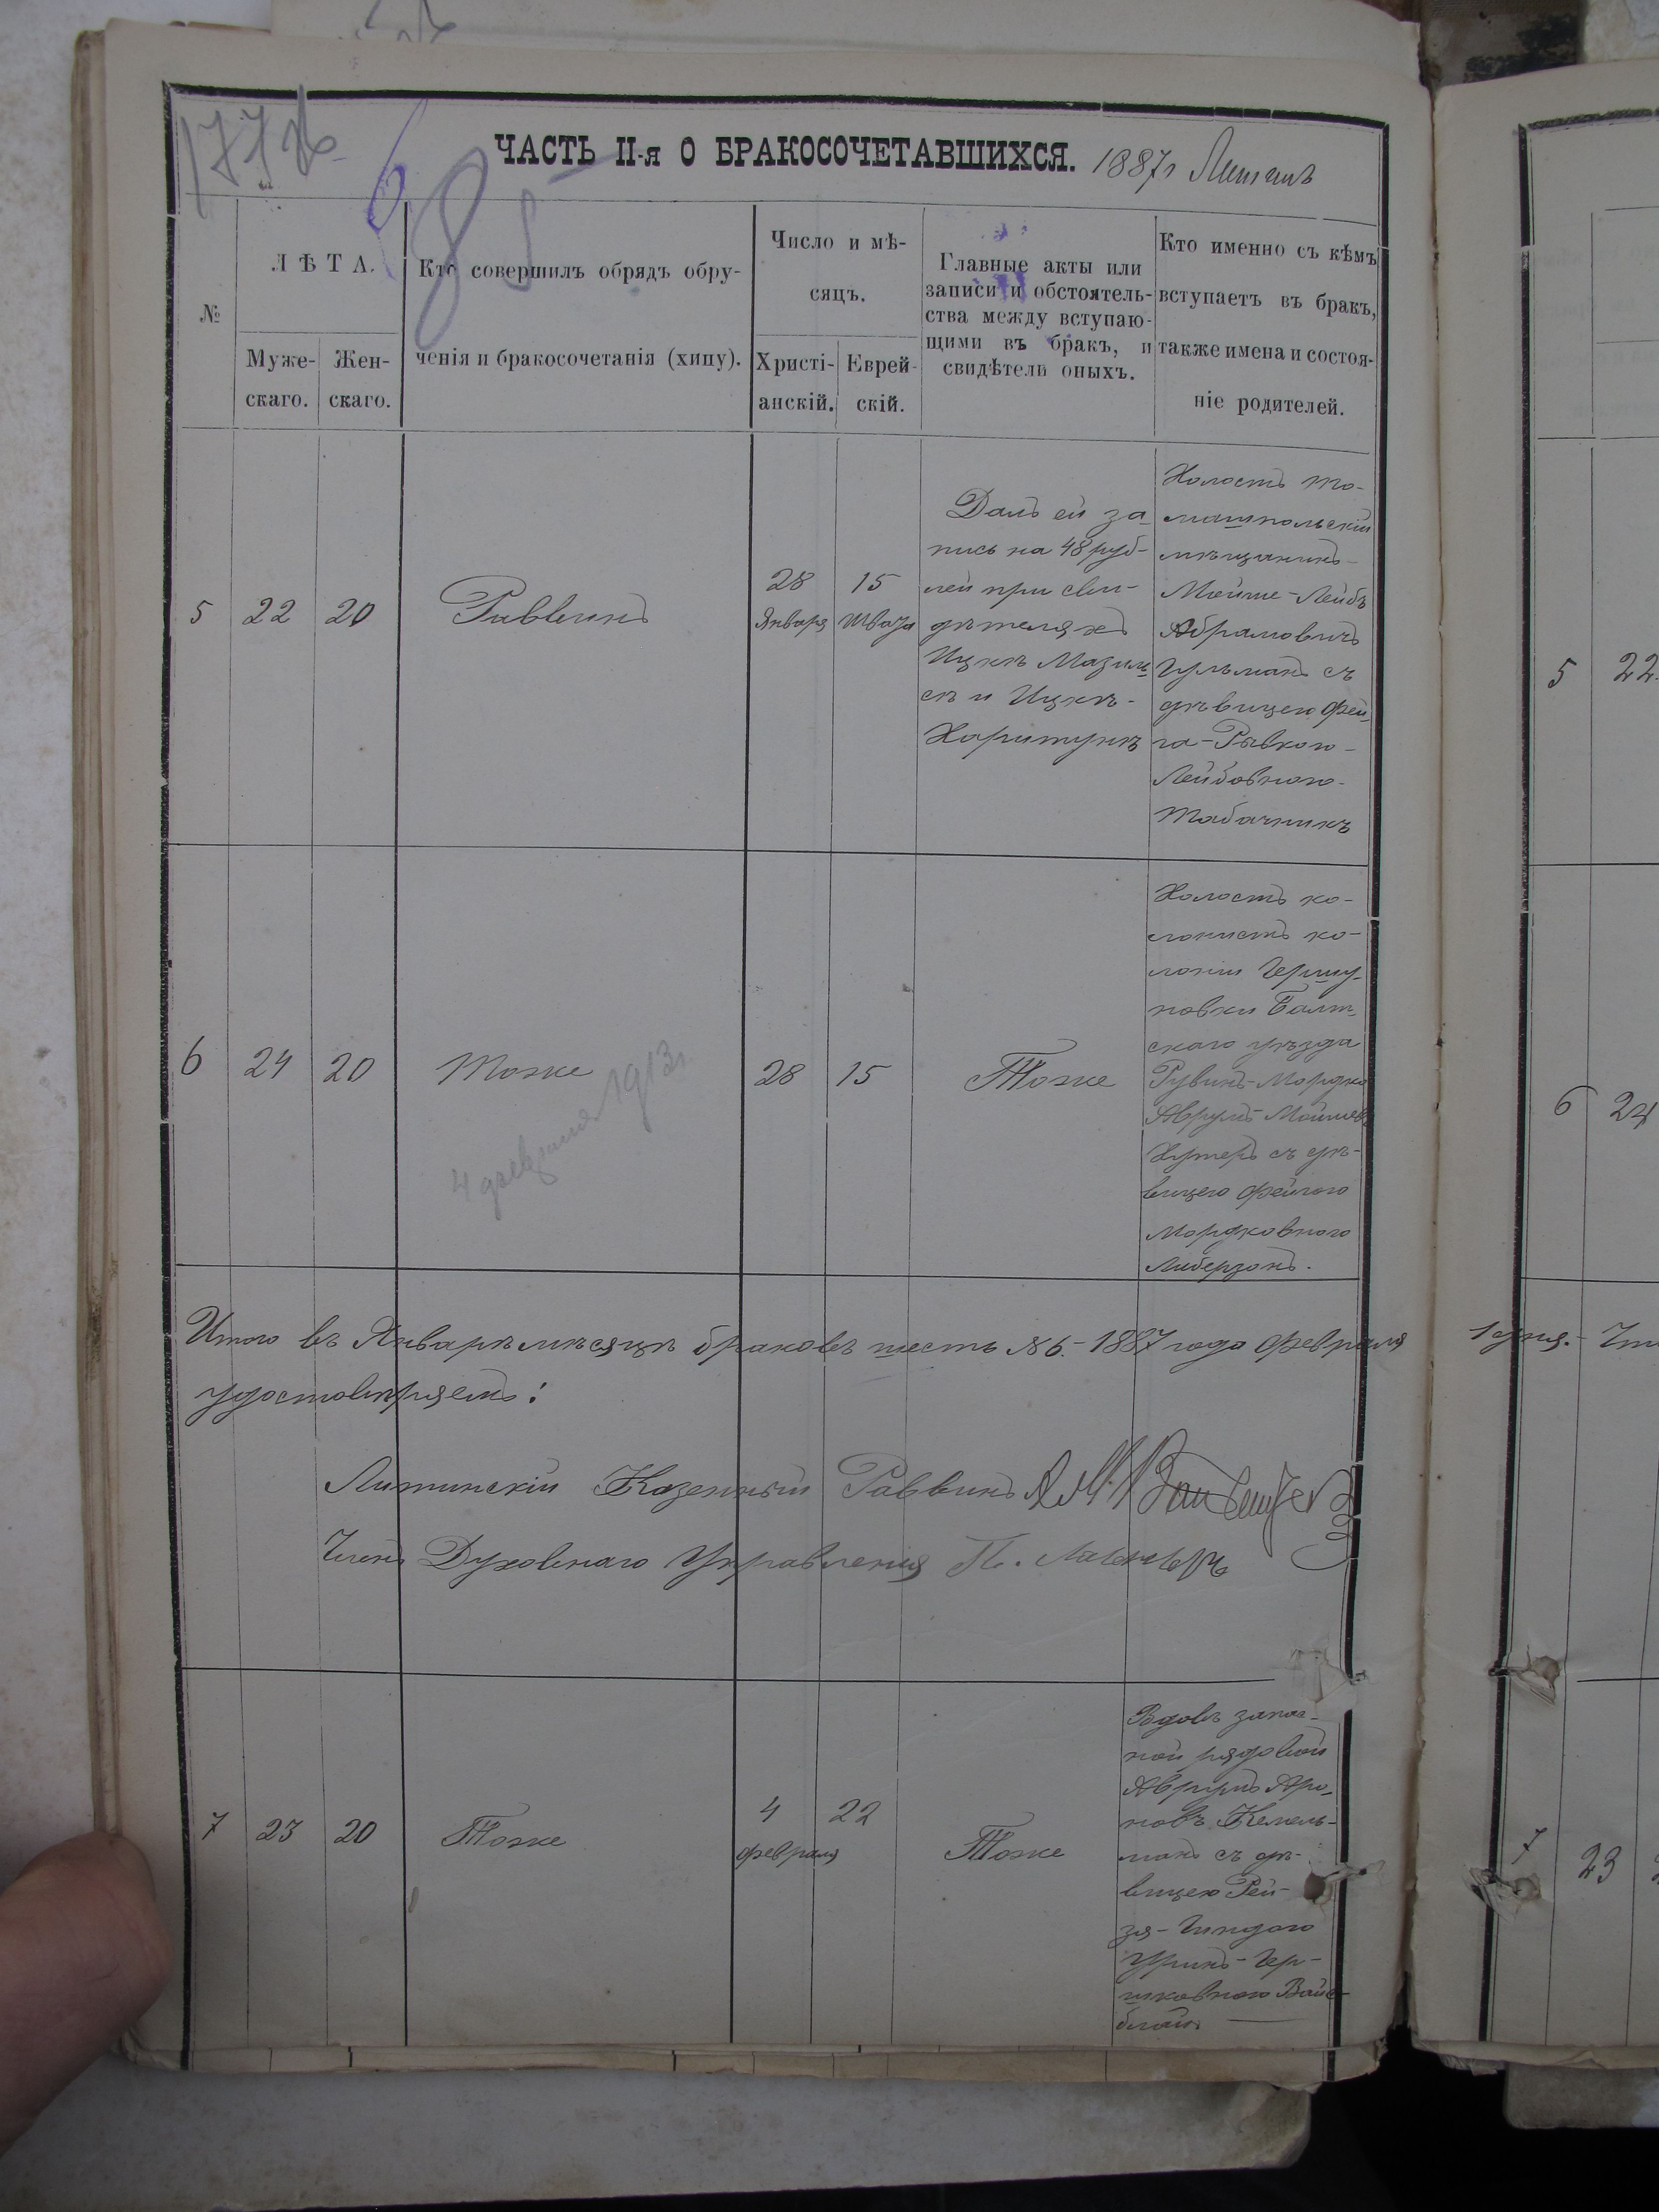 177
85
ЧАСТЬ II-я О БРАКОСОЧЕТАВШИХСЯ. 1887 г Литинъ
№
ЛѢТА.
Муже-
скаго.
Жен-
скаго.
Кто совершилъ обрядъ обру-
ченія и бракосочетанія (хипу).
Число и мѣ-
сяцъ.
Христі-
анскій.
Еврей-
скій.
Главные акты или
записи и обстоятель-
ства между вступаю-
щими въ бракъ, и
свидѣтели оныхъ.
Кто именно съ кѣмъ
вступаетъ въ бракъ,
также имена и состоя-
ніе родителей.
5
22
20
Раввинъ
28
Января
15
Швата
Далъ ей за-
пись на 48 руб-
лей при сви-
дѣтеляхъ
Ицкѣ
и Ицкѣ-
Холостъ То-
машпольскій
мѣщанинъ
Мойше-Лейбъ
Абрамовичъ
съ
дѣвицею Фей-
га-Рывкою
Лейбовною
Табачникъ
6
24
20
Тоже
28
15
Тоже
Холостъ ко-
лонистъ ко-
лоніи Гершу-
новки Балт-
скаго уѣзда
Рувинъ-Мордко
Аврумъ-Мойшевъ
съ дѣ-
вицею Фейгою
Мордковною
Либерзонъ.
4 февраля 1913 г
Итого въ Январѣ мѣсяцѣ браковъ шесть № 6.- 1887 года Февраля 1 дня.-
удостовѣряемъ:
Литинскій Казенный Раввинъ
Членъ Духовнаго Управленія
7
23
20
Тоже
4
февраля
22
Тоже
Вдовъ запас-
ной рядовой
Аврумъ Аро-
новъ Кемель-
манъ съ дѣ-
вицею Рей-
зя-Гиндою
Гер-
шковною Вайс-
блатъ
5 22
6 24
7 23